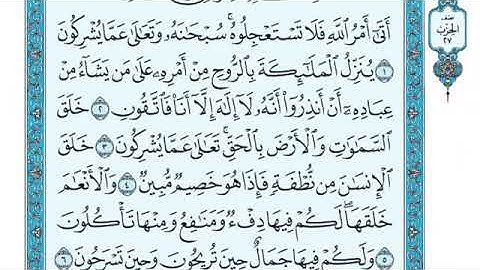 أَتَىٰٓ أَمْرُ ٱللَّهِ فَلَا تَسْتَعْجِلُوهُ ۚ سُبْحَٰنَهُۥ وَتَعَٰلَىٰ عَمَّا يُشْرِكُونَ
١ يُنَزِّلُ ٱلْمَلَٰٓئِكَةَ بِٱلرُّوحِ مِنْ أَمْرِهِۦ عَلَىٰ مَن يَشَآءُ مِنْ
عِبَادِهِۦٓ أَنْ أَنذِرُوٓا۟ أَنَّهُۥ لَآ إِلَٰهَ إِلَّآ أَنَا۠ فَٱتَّقُونِ ٢ خَلَقَ
ٱلسَّمَٰوَٰتِ وَٱلْأَرْضَ بِٱلْحَقِّ ۚ تَعَٰلَىٰ عَمَّا يُشْرِكُونَ ٣ خَلَقَ
ٱلْإِنسَٰنَ مِن نُّطْفَةٍ فَإِذَا هُوَ خَصِيمٌ مُّبِينٌ ٤ وَٱلْأَنْعَٰمَ
خَلَقَهَا ۗ لَكُمْ فِيهَا دِفْءٌ وَمَنَٰفِعُ وَمِنْهَا تَأْكُلُونَ
٥ وَلَكُمْ فِيهَا جَمَالٌ حِينَ تُرِيحُونَ وَحِينَ تَسْرَحُونَ ٦
نصف
الحزب
٢٧